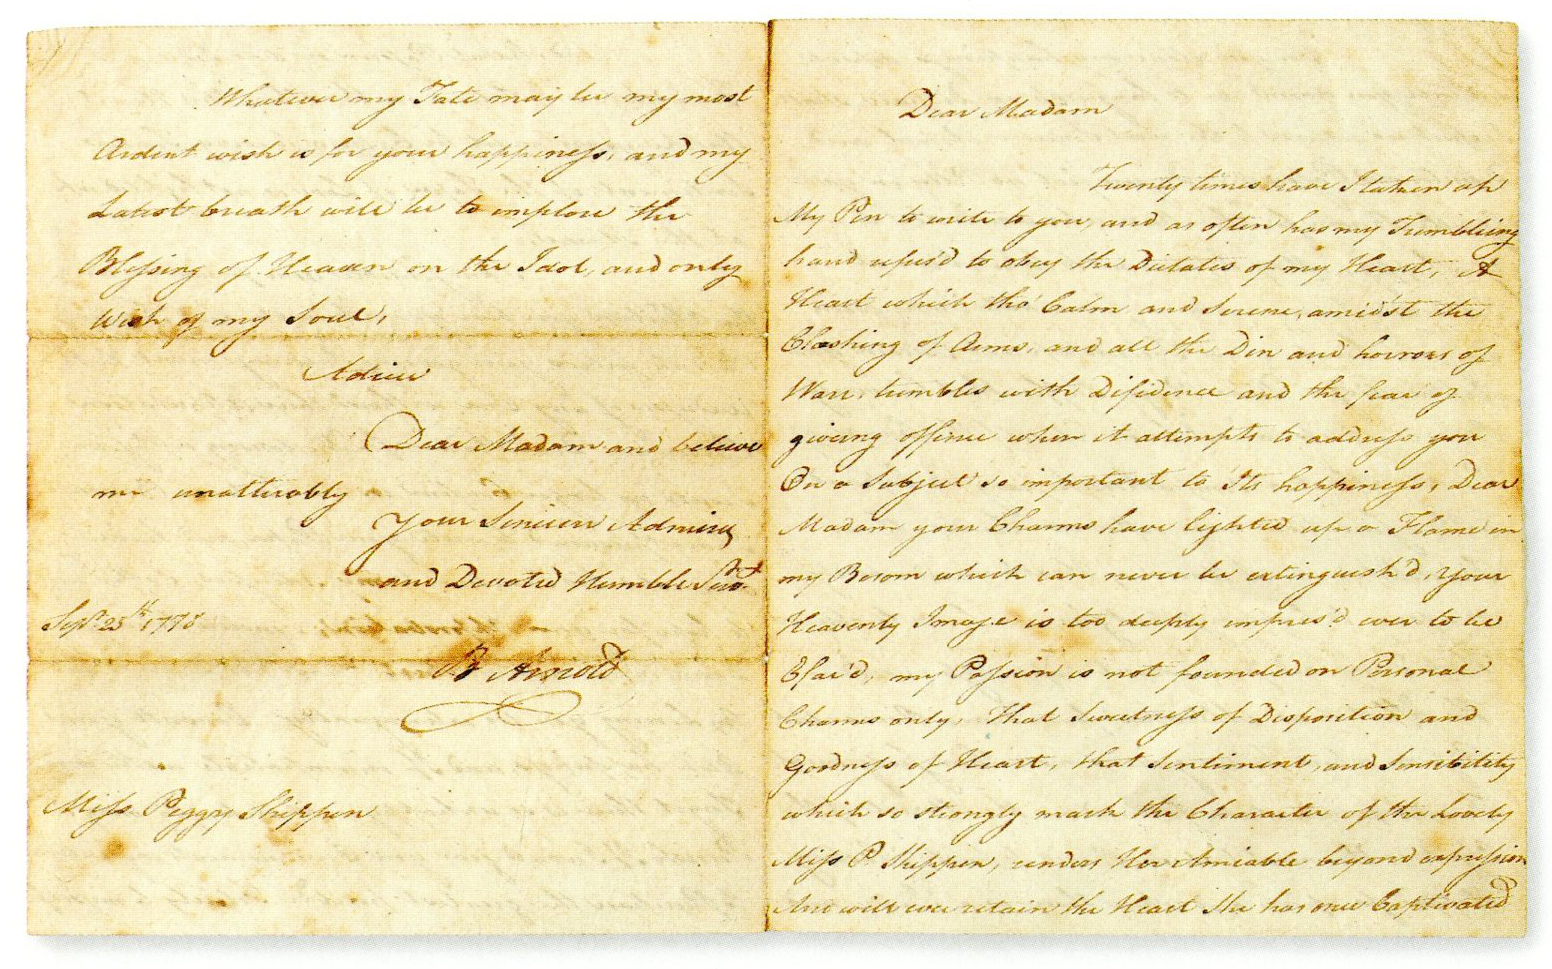 Whatever my Fate may be my most
Ardent wish is for your happiness, and my
Latest breath will be to implore the
Blessing of Heaven on the Idol, and only
Wish of my Soul,
Adieu
Dear Madam and believe
me unalterably
Your Sincere Admirer
and Devoted Humble Servt
Sepr. 25th 1778
B Arnold
Miss Peggy Shippen
Dear Madam
Twenty times have I taken up
My Pen to write to you, and as often has my Trembling
hand refus'd to obey the Dictates of my Heart, A
Heart which tho' Calm and Serene, amidst the
Clashing of Arms, and all the Din and horrors of
Warr, trembles with Difidence and the fear of
giveing offence when it attempts to address you
On a Subject so important to Its happiness, Dear
Madam your Charms have lighted up a Flame in
my Bosom which can never be extinguish'd, Your
Heavenly Image is too deeply impres'd ever to be
Efac'd, my Passion is not founded on Personal
Charms only, that Sweetness of Disposition and
Goodness of Heart, that Sentiment, and Sensibility
which so strongly mark the Character of the Lovely
Miss P. Shippen, renders Her Amiable beyond expression
And will ever retain the Heart She has once Captivated